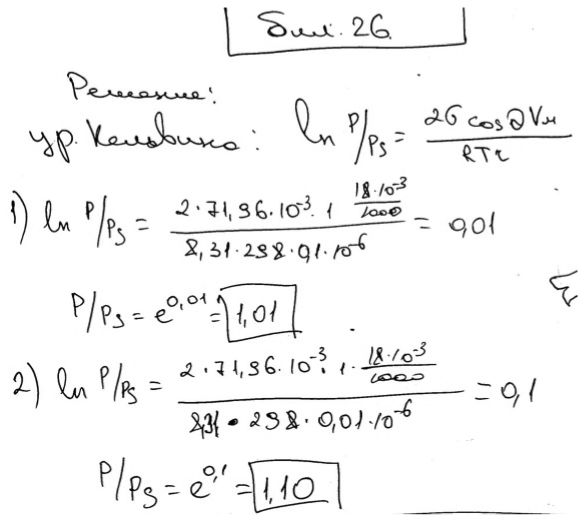 Бил. 26
Решение:
ур. Кельвина: ln P/Ps = 2σ cosθ Vм / RTr
1) ln P/Ps = 2·71,96·10⁻³·1 18·10⁻³/1000 / 8,31·298·0,1·10⁻⁶ = 0,01
P/Ps = e^0,01 = 1,01
2) ln P/Ps = 2·71,96·10⁻³·1·18·10⁻³/1000 / 8,31·298·0,01·10⁻⁶ = 0,1
P/Ps = e^0,1 = 1,10